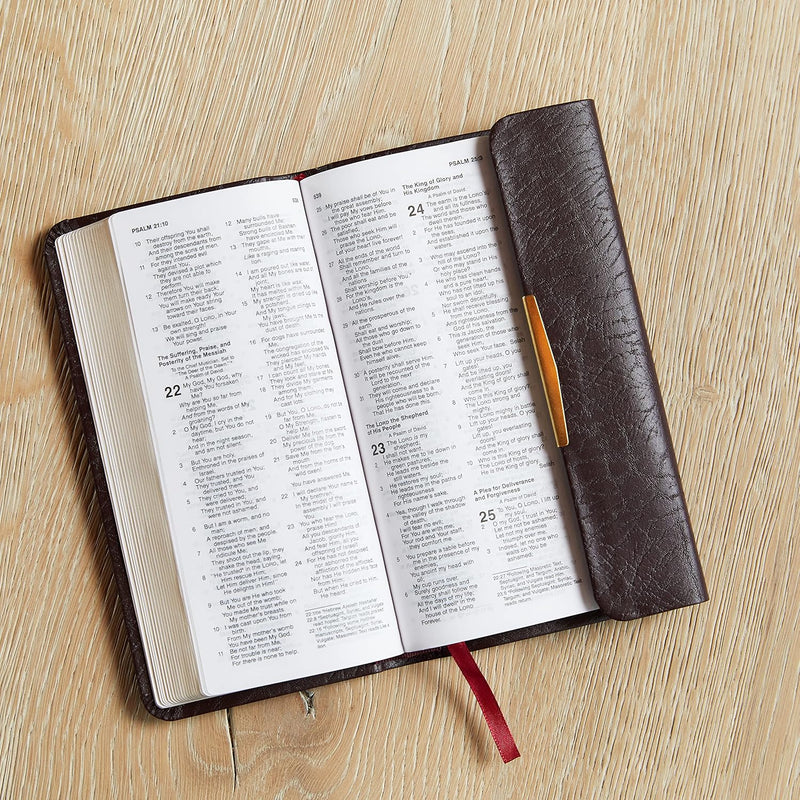 PSALM 21:10
10 Their offspring You shall
destroy from the earth,
And their descendants from
among the sons of men.
11 For they intended evil
against You;
They devised a plot which
they are not able to
perform.
12 Therefore You will make
them turn their back;
You will make ready Your
arrows on Your string
toward their faces.
13 Be exalted, O LORD, in Your
own strength!
We will sing and praise
Your power.
The Suffering, Praise, and
Posterity of the Messiah
To the Chief Musician. Set to
"The Deer of the Dawn."
A Psalm of David.
22 My God, My God, why
have You forsaken
Me?
Why are You so far from
helping Me,
And from the words of My
groaning?
2 O My God, I cry in the
daytime, but You do not
hear;
And in the night season,
and am not silent.
3 But You are holy,
Enthroned in the praises of
Israel.
4 Our fathers trusted in You;
They trusted, and You
delivered them.
5 They cried to You, and
were delivered;
They trusted in You, and
were not ashamed.
6 But I am a worm, and no
man;
A reproach of men, and
despised by the people.
7 All those who see Me
ridicule Me;
They shoot out the lip, they
shake the head, saying,
8 "He trusted in the LORD, let
Him rescue Him;
Let Him deliver Him, since
He delights in Him!"
9 But You are He who took
Me out of the womb;
You made Me trust while on
My mother's breasts.
10 I was cast upon You from
birth.
From My mother's womb
You have been My God.
11 Be not far from Me,
For trouble is near;
For there is none to help.
12 Many bulls have
surrounded Me;
Strong bulls of Bashan
have encircled Me.
13 They gape at Me with their
mouths,
Like a raging and roaring
lion.
14 I am poured out like water,
And all My bones are out of
joint;
My heart is like wax;
It has melted within Me.
15 My strength is dried up like
a potsherd,
And My tongue clings to
My jaws;
You have brought Me to the
dust of death.
16 For dogs have surrounded
Me;
The congregation of the
wicked has enclosed Me.
They pierced My hands
and My feet;
17 I can count all My bones.
They look and stare at Me.
18 They divide My garments
among them,
And for My clothing they
cast lots.
19 But You, O LORD, do not be
far from Me;
O My Strength, hasten to
help Me!
20 Deliver Me from the sword,
My precious life from the
power of the dog.
21 Save Me from the lion's
mouth
And from the horns of the
wild oxen!
You have answered Me.
22 I will declare Your name to
My brethren;
In the midst of the
assembly I will praise
You.
23 You who fear the LORD,
praise Him!
All you descendants of
Jacob, glorify Him,
And fear Him, all you
offspring of Israel!
24 For He has not despised nor
abhorred the affliction
of the afflicted;
Nor has He hidden His face
from Him;
But when He cried to Him,
He heard.
639
PSALM 25:3
25 My praise shall be of You in
the great assembly;
I will pay My vows before
those who fear Him.
26 The poor shall eat and be
satisfied;
Those who seek Him will
praise the LORD.
Let your heart live forever!
27 All the ends of the world
Shall remember and turn to
the LORD,
And all the families of the
nations
Shall worship before You.
28 For the kingdom is the
LORD's,
And He rules over the
nations.
29 All the prosperous of the
earth
Shall eat and worship;
All those who go down to
the dust
Shall bow before Him,
Even he who cannot keep
himself alive.
30 A posterity shall serve Him.
It will be recounted of the
Lord to the next
generation,
31 They will come and declare
His righteousness to a
people who will be born,
That He has done this.
The LORD the Shepherd
of His People
A Psalm of David.
23 The LORD is my
shepherd;
I shall not want.
2 He makes me to lie down in
green pastures;
He leads me beside the
still waters.
3 He restores my soul;
He leads me in the paths of
righteousness
For His name's sake.
4 Yea, though I walk through
the valley of the shadow
of death,
I will fear no evil;
For You are with me;
Your rod and Your staff,
they comfort me.
5 You prepare a table before
me in the presence of my
enemies;
You anoint my head with
oil;
My cup runs over.
6 Surely goodness and
mercy shall follow me
All the days of my life;
And I will dwell in the
house of the LORD
Forever.
The King of Glory and
His Kingdom
A Psalm of David.
24 The earth is the LORD's,
and all its fullness,
The world and those who
dwell therein.
2 For He has founded it upon
the seas,
And established it upon the
waters.
3 Who may ascend into the
hill of the LORD?
Or who may stand in His
holy place?
4 He who has clean hands
and a pure heart,
Who has not lifted up his
soul to an idol,
Nor sworn deceitfully.
5 He shall receive blessing
from the LORD,
And righteousness from the
God of his salvation.
6 This is Jacob, the
generation of those who
seek Him,
Who seek Your face. Selah
7 Lift up your heads, O you
gates!
And be lifted up, you
everlasting doors!
And the King of glory shall
come in.
8 Who is this King of glory?
The LORD strong and
mighty,
The LORD mighty in battle.
9 Lift up your heads, O you
gates!
Lift up, you everlasting
doors!
And the King of glory shall
come in.
10 Who is this King of glory?
The LORD of hosts,
He is the King of glory. Selah
A Plea for Deliverance
and Forgiveness
A Psalm of David.
25 To You, O LORD, I lift up
my soul.
2 O my God, I trust in You;
Let me not be ashamed;
Let not my enemies
triumph over me.
3 Indeed, let no one who
waits on You be
ashamed;